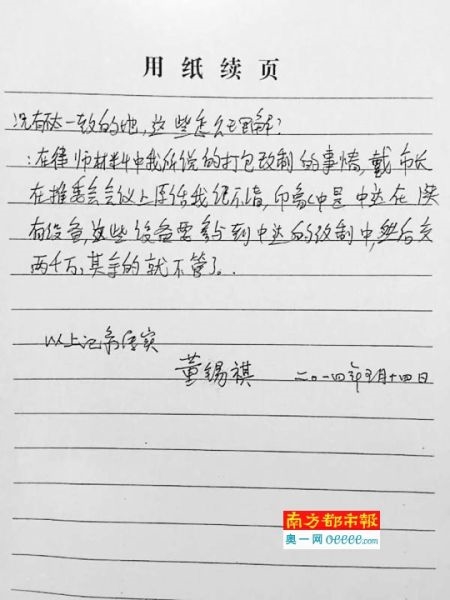 用纸续页
况有不太一致的地,这些怎么理解?
:在律师材料中我所说的打包改制的事情,戴市长
在推委会会议上原话我记不清,印象中是中达在
有设备,这些设备要参与到中达的改制中,然后交
两千万,其余的就不管了。
以上记录属实
董锡祺 二〇一四年 月十四日
南方都市报
奥一网 oeeee.com